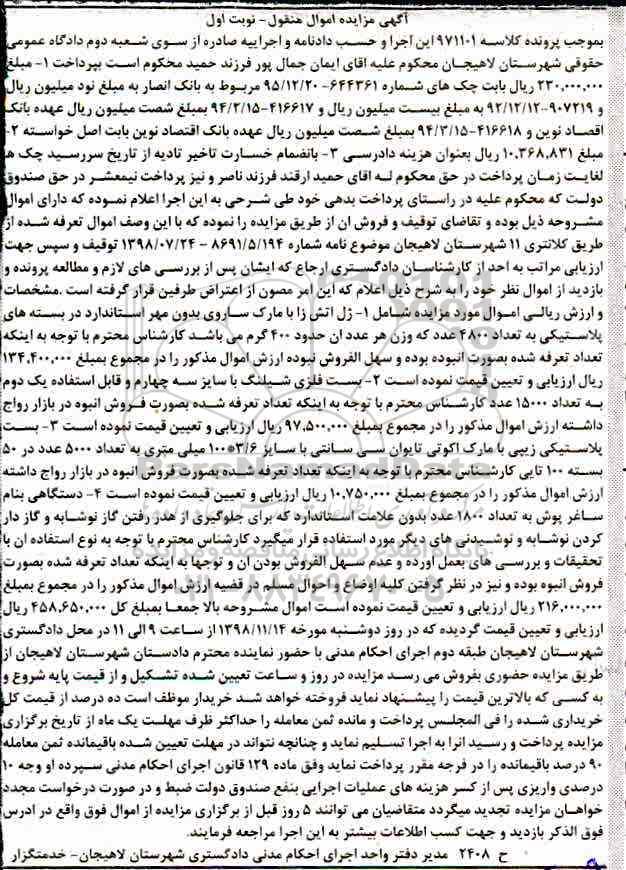 آگهی مزایده اموال منقول- نوبت اول
بموجب پرونده کلاسه ۹۷۱۱۰۱ این اجرا و حسب دادنامه و اجراییه صادره از سوی شعبه دوم دادگاه عمومی
حقوقی شهرستان لاهیجان محکوم علیه اقای ایمان جمال پور فرزند حمید محکوم است بپرداخت ۱- مبلغ
۲۳۰,۰۰۰,۰۰۰ ریال بابت چک های شماره ۶۴۴۳۶۱- ۹۵/۱۲/۲۰ مربوط به بانک انصار به مبلغ نود میلیون ریال
و ۹۰۷۲۱۹-۹۲/۱۲/۱۲ به مبلغ بیست میلیون ریال و ۴۱۶۶۱۷-۹۴/۲/۱۵ بمبلغ شصت میلیون ریال عهده بانک
اقتصاد نوین و ۴۱۶۶۱۸-۹۴/۳/۱۵ بمبلغ شصت میلیون ریال عهده بانک اقتصاد نوین بابت اصل خواسته ۲-
مبلغ ۱۰,۳۶۸,۸۳۱ ریال بعنوان هزینه دادرسی ۳- بانضمام خسارت تاخیر تادیه از تاریخ سررسید چک ها
لغایت زمان پرداخت در حق محکوم له اقای حمید ارقند فرزند ناصر و نیز پرداخت نیمعشر در حق صندوق
دولت که محکوم علیه در راستای پرداخت بدهی خود طی شرحی به این اجرا اعلام نموده که دارای اموال
مشروحه ذیل بوده و تقاضای توقیف و فروش ان از طریق مزایده را نموده که با این وصف اموال تعرفه شده از
طریق کلانتری ۱۱ شهرستان لاهیجان موضوع نامه شماره ۸۶۹۱/۵/۱۹۴ – ۱۳۹۸/۰۷/۲۴ توقیف و سپس جهت
ارزیابی مراتب به احد از کارشناسان دادگستری ارجاع که ایشان پس از بررسی های لازم و مطالعه پرونده و
بازدید از اموال نظر خود را به شرح ذیل اعلام که این امر مصون از اعتراض طرفین قرار گرفته است .مشخصات
و ارزش ریالی اموال مورد مزایده شامل ۱- ژل اتش زا با مارک ساروی بدون مهر استاندارد در بسته های
پلاستیکی به تعداد ۴۸۰۰ عدد که وزن هر عدد ان حدود ۴۰۰ گرم می باشد کارشناس محترم با توجه به اینکه
تعداد تعرفه شده بصورت انبوده بوده و سهل الفروش نبوده ارزش اموال مذکور را در مجموع بمبلغ ۱۳۴,۴۰۰,۰۰۰
ریال ارزیابی و تعیین قیمت نموده است ۲- بست فلزی شیلنگ با سایز سه چهارم و قابل استفاده یک دوم
به تعداد ۱۵۰۰۰ عدد کارشناس محترم با توجه به اینکه تعداد تعرفه شده بصورت فروش انبوه در بازار رواج
داشته ارزش اموال مذکور را در مجموع بمبلغ ۹۷,۵۰۰,۰۰۰ ریال ارزیابی و تعیین قیمت نموده است ۳- بست
پلاستیکی زیپی با مارک اکوتی تایوان سی سانتی با سایز ۳/۶*۱۰۰ میلی متری به تعداد ۵۰۰۰ عدد در ۵۰
بسته ۱۰۰ تایی کارشناس محترم با توجه به اینکه تعداد تعرفه شده بصورت فروش انبوه در بازار رواج داشته
ارزش اموال مذکور را در مجموع بمبلغ ۱۰,۷۵۰,۰۰۰ ریال ارزیابی و تعیین قیمت نموده است ۴- دستگاهی بنام
ساغر پوش به تعداد ۱۸۰۰ عدد بدون علامت استاندارد که برای جلوگیری از هدر رفتن گاز نوشابه و گاز دار
کردن نوشابه و نوشیدنی های دیگر مورد استفاده قرار میگیرد کارشناس محترم با توجه به نوع استفاده ان با
تحقیقات و بررسی های بعمل اورده و عدم سهل الفروش بودن ان و توجها به اینکه تعداد تعرفه شده بصورت
فروش انبوه بوده و نیز در نظر گرفتن کلیه اوضاع و احوال مسلم در قضیه ارزش اموال مذکور را در مجموع بمبلغ
۲۱۶,۰۰۰,۰۰۰ ریال ارزیابی و تعیین قیمت نموده است اموال مشروحه بالا جمعا بمبلغ کل ۴۵۸,۶۵۰,۰۰۰ ریال
ارزیابی و تعیین قیمت گردیده که در روز دوشنبه مورخه ۱۳۹۸/۱۱/۱۴ از ساعت ۹ الی ۱۱ در محل دادگستری
شهرستان لاهیجان طبقه دوم اجرای احکام مدنی با حضور نماینده محترم دادستان شهرستان لاهیجان از
طریق مزایده حضوری بفروش می رسد مزایده در روز و ساعت تعیین شده تشکیل و از قیمت پایه شروع و
به کسی که بالاترین قیمت را پیشنهاد نماید فروخته خواهد شد خریدار موظف است ده درصد از قیمت کل
خریداری شده را فی المجلس پرداخت و مانده ثمن معامله را حداکثر ظرف مهلت یک ماه از تاریخ برگزاری
مزایده پرداخت و رسید انرا به اجرا تسلیم نماید و چنانچه نتواند در مهلت تعیین شده باقیمانده ثمن معامله
۹۰ درصد باقیمانده را در فرجه مقرر پرداخت نماید وفق ماده ۱۲۹ قانون اجرای احکام مدنی سپرده او وجه ۱۰
درصدی واریزی پس از کسر هزینه های عملیات اجرایی بنفع صندوق دولت ضبط و در صورت درخواست مجدد
خواهان مزایده تجدید میگردد متقاضیان می توانند ۵ روز قبل از برگزاری مزایده از اموال فوق واقع در ادرس
فوق الذکر بازدید و جهت کسب اطلاعات بیشتر به این اجرا مراجعه فرمایند.
ح ۲۴۰۸ مدیر دفتر واحد اجرای احکام مدنی دادگستری شهرستان لاهیجان- خدمتگزار